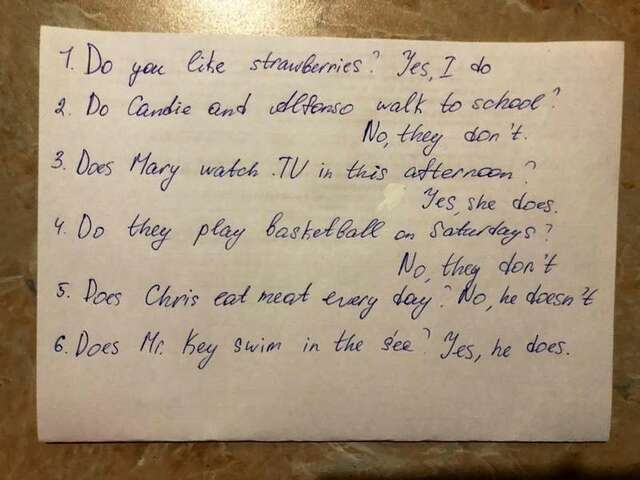 1. Do you like strawberries? Yes, I do
2. Do Candie and Alfonso walk to school?
No, they don't.
3. Does Mary watch TV in this afternoon?
Yes, she does.
4. Do they play basketball on Saturdays?
No, they don't
5. Does Chris eat meat every day? No, he doesn't
6. Does Mr. Key swim in the see? Yes, he does.